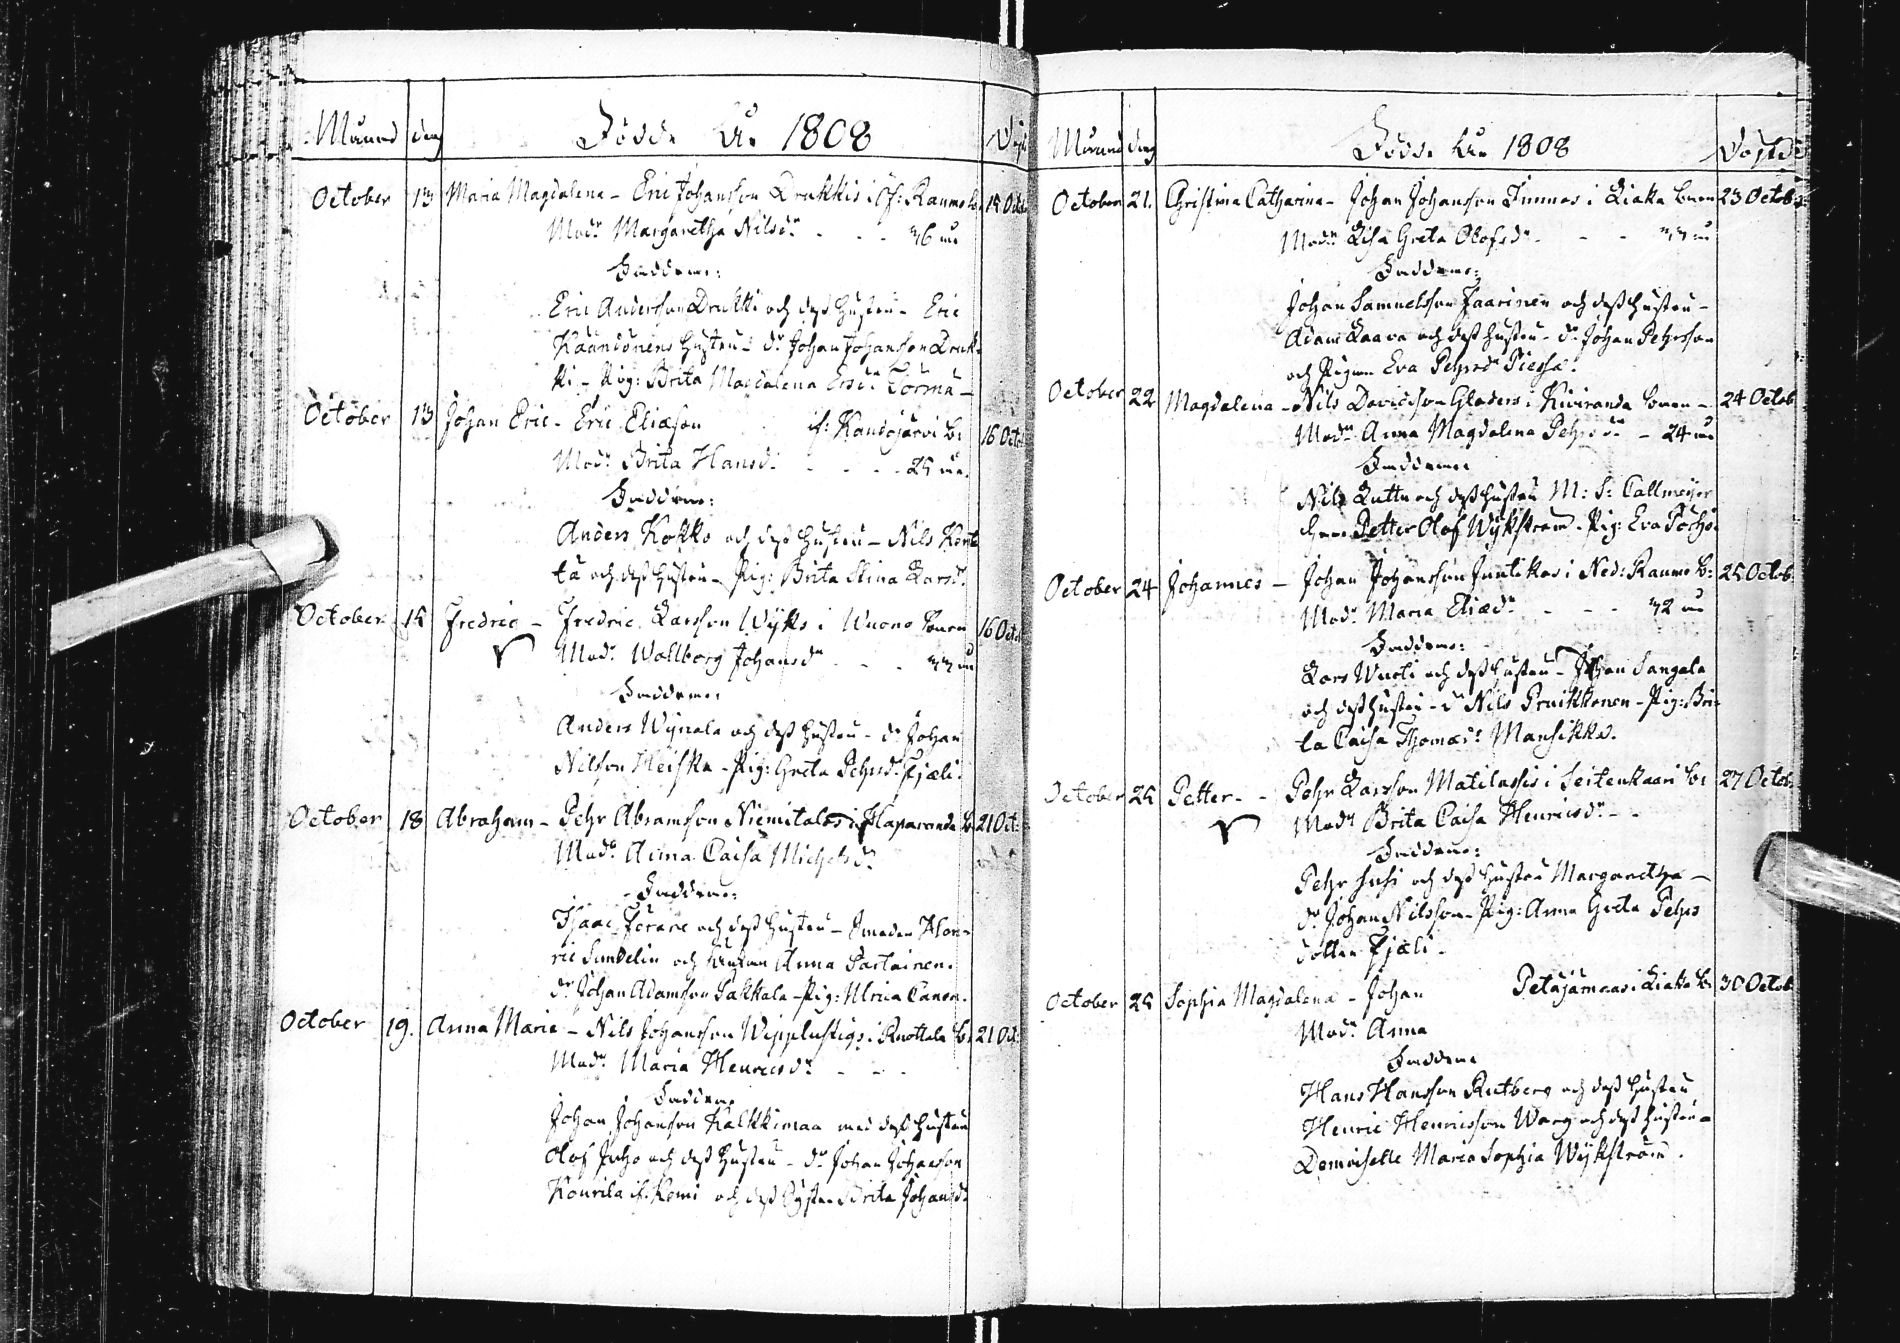 Månad dag Födde År 1808 Döpt
October 13 Maria Magdalena - Eric Johansson Drakkis i Öf: Raumo b: 15 Oct
Modr Margaretha Nilsdr - - - 36 år
Faddrar:
Eric Andersson Drakki och dess hustru - Eric
Kaandonens hustru - dr Johan Johansson Drak-
ki - Pig: Brita Magdalena Ersdr Törmä -
October 13 Johan Eric - Eric Eliæson if: Kandojärvi b: 16 Oct
Modr Brita Hansdr - - - 25 år.
Faddrar:
Anders Kokko och dess hustru - Nils Kort-
ta och dess hustru - Pig: Brita Stina Larsdr
October 15 Fredric - Fredric Larsson Wyks i Wuono byen 16 Oct
Modr Wallborg Johansdr - - - 33 år
Faddrar:
Anders Wynala och dess hustru - dr Johan
Nilsson Heiska - Pig: Greta Pehrsdr Fjæli.
October 18 Abraham - Pehr Abramsson Niemitalos i Haparanda b 21 Oct:
Modr Anna Caisa Michelsdr
Faddrar:
Isaac Förare och dess hustru - Smeden Hen-
ric Sundelin och hustru Anna Partainen.
dr Johan Adamsson Lakkala - Pig: Ulrica Canon.
October 19. Anna Maria - Nils Johansson Wippluskigs i Knottala b: 21 Oct
Modr Maria Henricsdr - - -
Faddrar
Johan Johansson Kalkkimaa med dess hustru
Olof Juho och dess hustru - dr Johan Johansson
Kourila if: Kemi och dess syster Brita Johansdr
Månad dag Födde År 1808 Döpte
October 21. Christina Catharina - Johan Johansson Innnas i Liaka byen 23 Octob:
Modr Lisa Greta Olofsdr - - - 33 år
Faddrar:
Johan Samuelsson Jaarinen och dess hustru -
Adam Laava och dess hustru - dr Johan Pehrsson
och Pigan Eva Pehrsdr Piessa.
October 22 Magdalena - Nils Davidsson Gladers i Kiviranda byen - 24 Octob
Modr Anna Magdalena Pehrsdr - 24 år
Faddrar
Nils Luttu och dess hustru M: S: Callmeyer
Herr Petter Olof Wykström - Pig: Eva Pochs.
October 24 Johannes - Johan Johansson Juntikas i Ned: Raumo b: 25 Octob.
Modr Maria Eliædr - - - 32 år
Faddrar:
Lars Wuoti och dess hustru - Johan Sangala
och dess hustru - dr Nils Pruikkonen - Pig: Bri-
ta Caisa Thomædr Mansikka.
October 25 Petter - - Pehr Larsson Matilassis i Seitenkaari b: 27 Octob:
Modr Brita Caisa Henricsdr - -
Faddrar:
Pehr Susi och dess hustru Margaretha -
dr Johan Nilsson - Pig: Anna Greta Pehrs
dotter Fjæli.
October 25 Sophia Magdalena - Johan Petäjämaas i Liaka b: 30 Octob
Modr Anna
Faddrar
Hans Hansson Rutberg och dess hustru
Henric Henricsson Warg och dess hustru -
Demoiselle Maria Sophia Wykström.